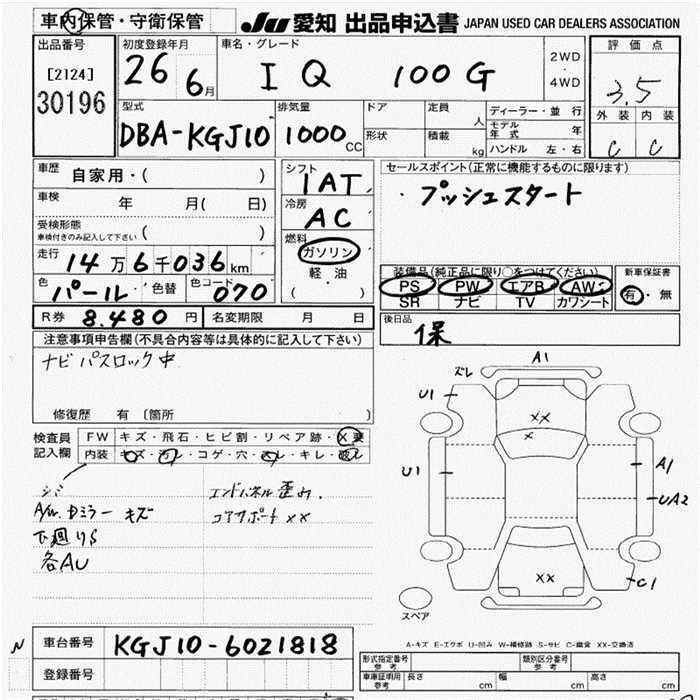 車内保管・守衛保管 JU 愛知 出品申込書 JAPAN USED CAR DEALERS ASSOCIATION
出品番号 [2124] 30196
初度登録年月 26 6月
車名・グレード IQ 100G
2WD・4WD
評価点 3.5
外装 C 内装 C
型式 DBA-KGJ10
排気量 1000 CC
ドア 形状
定員 人 積載 kg
ディーラー・並行
モデル年式 年
ハンドル 左・右
車歴 自家用・( )
車検 年 月( 日)
受検形態 車検付きのみ記入して下さい ( )
走行 14万6千036km
色 パール 色替 色コード 070
シフト IAT
冷房 AC
燃料 ガソリン・軽油 ( )
セールスポイント(正常に機能するものに限ります)
・プッシュスタート
装備品(純正品に限り○をつけてください)
PS PW エアB AW
SR ナビ TV カワシート
新車保証書 有・無
R券 8.480円 名変期限 月 日
後日品 保
注意事項申告欄(不具合内容等は具体的に記入して下さい)
ナビパスロック中
修復歴 有〔箇所 〕
検査員記入欄
FW キズ・飛石・ヒビ割・リペア跡・X要
内装 キズ・汚レ・コゲ・穴・・キレ・破レ
シミ
A/W.Dミラー キズ
下廻りS
各AU
エンドパネル歪み.
コアサポート XX
ズレ A1
U1
XX
X
U1
A1
UA2
XX
C1
スペア
A-キズ E-エクボ U-凹み W-補修跡 S-サビ C-腐食 XX-交換済
N 車台番号 KGJ10-6021818
登録番号
形式指定番号 参考 類別区分番号 参考
車庫証明用 参考 長さ cm 幅 cm 高さ cm